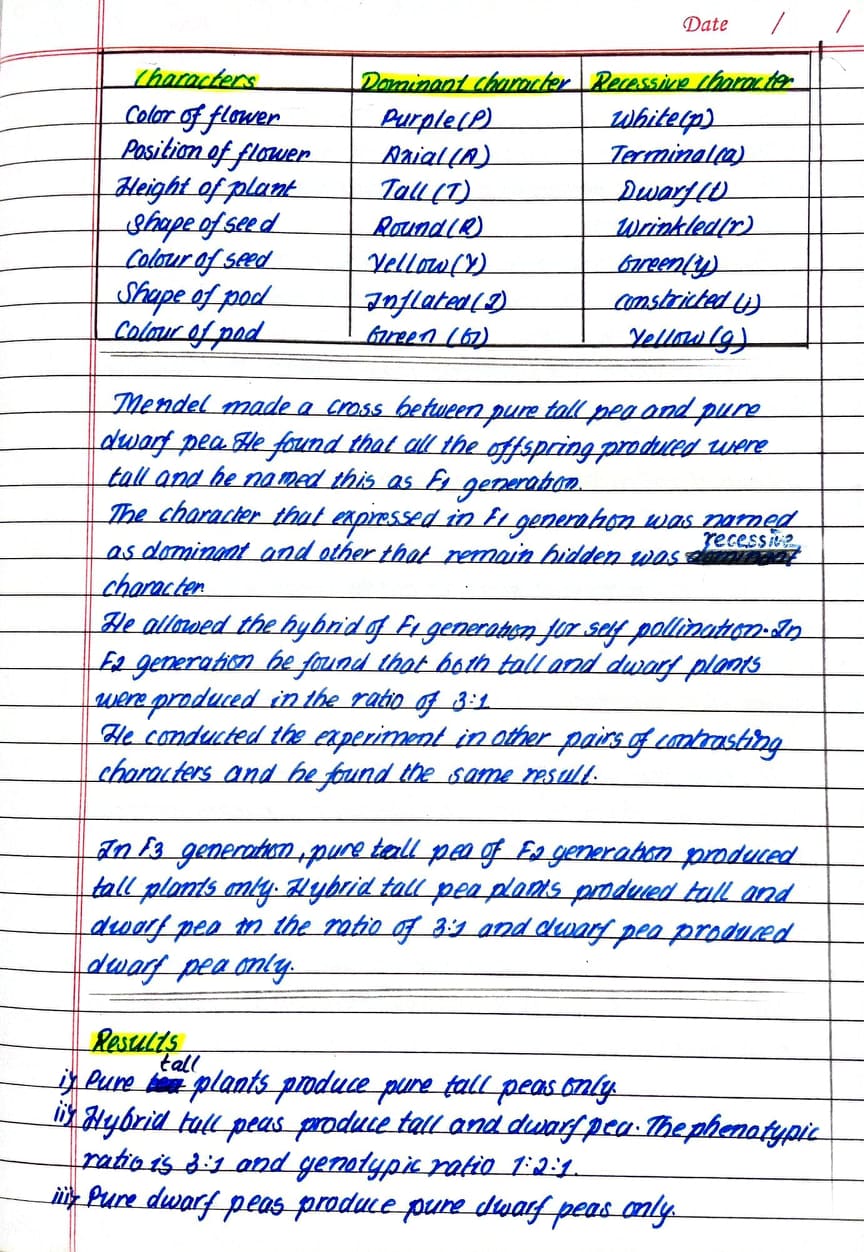 Date / /
Characters Dominant character Recessive character
Color of flower Purple(P) White(p)
Position of flower Axial(A) Terminal(a)
Height of plant Tall (T) Dwarf(t)
Shape of seed Round(R) Wrinkled(r)
Colour of seed Yellow(Y) Green(y)
Shape of pod Inflated(I) constricted (i)
Colour of pod Green (G) Yellow(g)
Mendel made a cross between pure tall pea and pure
dwarf pea. He found that all the offspring produced were
tall and he named this as F1 generation.
The character that expressed in F1 generation was named
as dominant and other that remain hidden was recessive
character
He allowed the hybrid of F1 generation for self pollination. In
F2 generation he found that both tall and dwarf plants
were produced in the ratio of 3:1
He conducted the experiment in other pairs of contrasting
characters and he found the same result.
In F3 generation, pure tall pea of F2 generation produced
tall plants only. Hybrid tall pea plants produced tall and
dwarf pea in the ratio of 3:1 and dwarf pea produced
dwarf pea only.
Results
i) Pure tall plants produce pure tall peas only.
ii) Hybrid tall peas produce tall and dwarf pea. The phenotypic
ratio is 3:1 and genotypic ratio 1:2:1.
iii) Pure dwarf peas produce pure dwarf peas only.